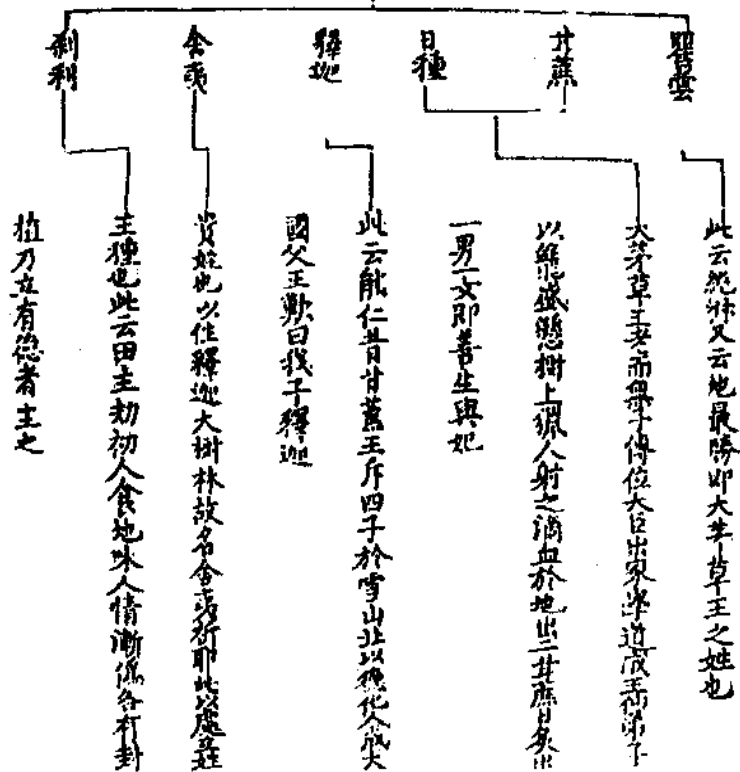 瞿曇
甘蔗
日種
釋迦
舍夷
刹利
此云純淑又云地最勝即大茅草王之姓也
大茅草王老而無子傳位大臣出家學道成王仙弟子
以籠盛懸樹上獵人射之滴血於地出二甘蔗日炙出
一男一女即善生與妃
此云能仁昔甘蔗王斥四子於雪山北以德化人成大
國父王歎曰我子釋迦
貴姓也以住釋迦大樹林故名舍夷祈耶此以處立姓
王種也此云田主劫初人食地味人情漸僞各有封
植乃立有德者主之